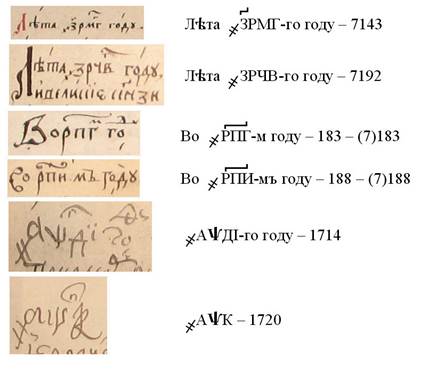 Лѣта ҂зрмг году.
Лѣта ҂ЗРМГ-го году – 7143
Лѣта ҂зрчв году
Лѣта ҂ЗРЧВ-го году – 7192
Во рпг го
Во ҂РПГ-м году – 183 – (7)183
Во рпи мъ году
Во ҂РПИ-мъ году – 188 – (7)188
҂аѱді го
҂АѰДІ-го году – 1714
҂аѱк
҂АѰК – 1720